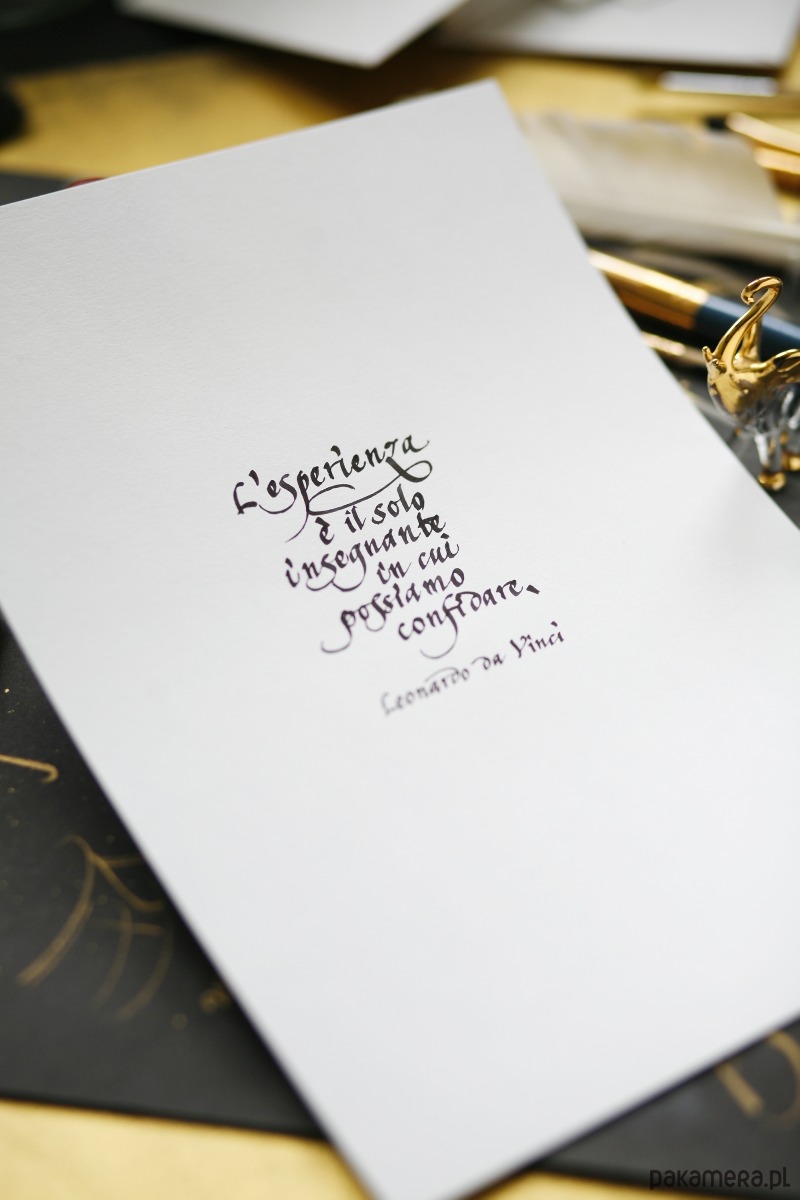 L'esperienza
è il solo
insegnante
in cui
possiamo
confidare.
Leonardo da Vinci
pakamera.pl